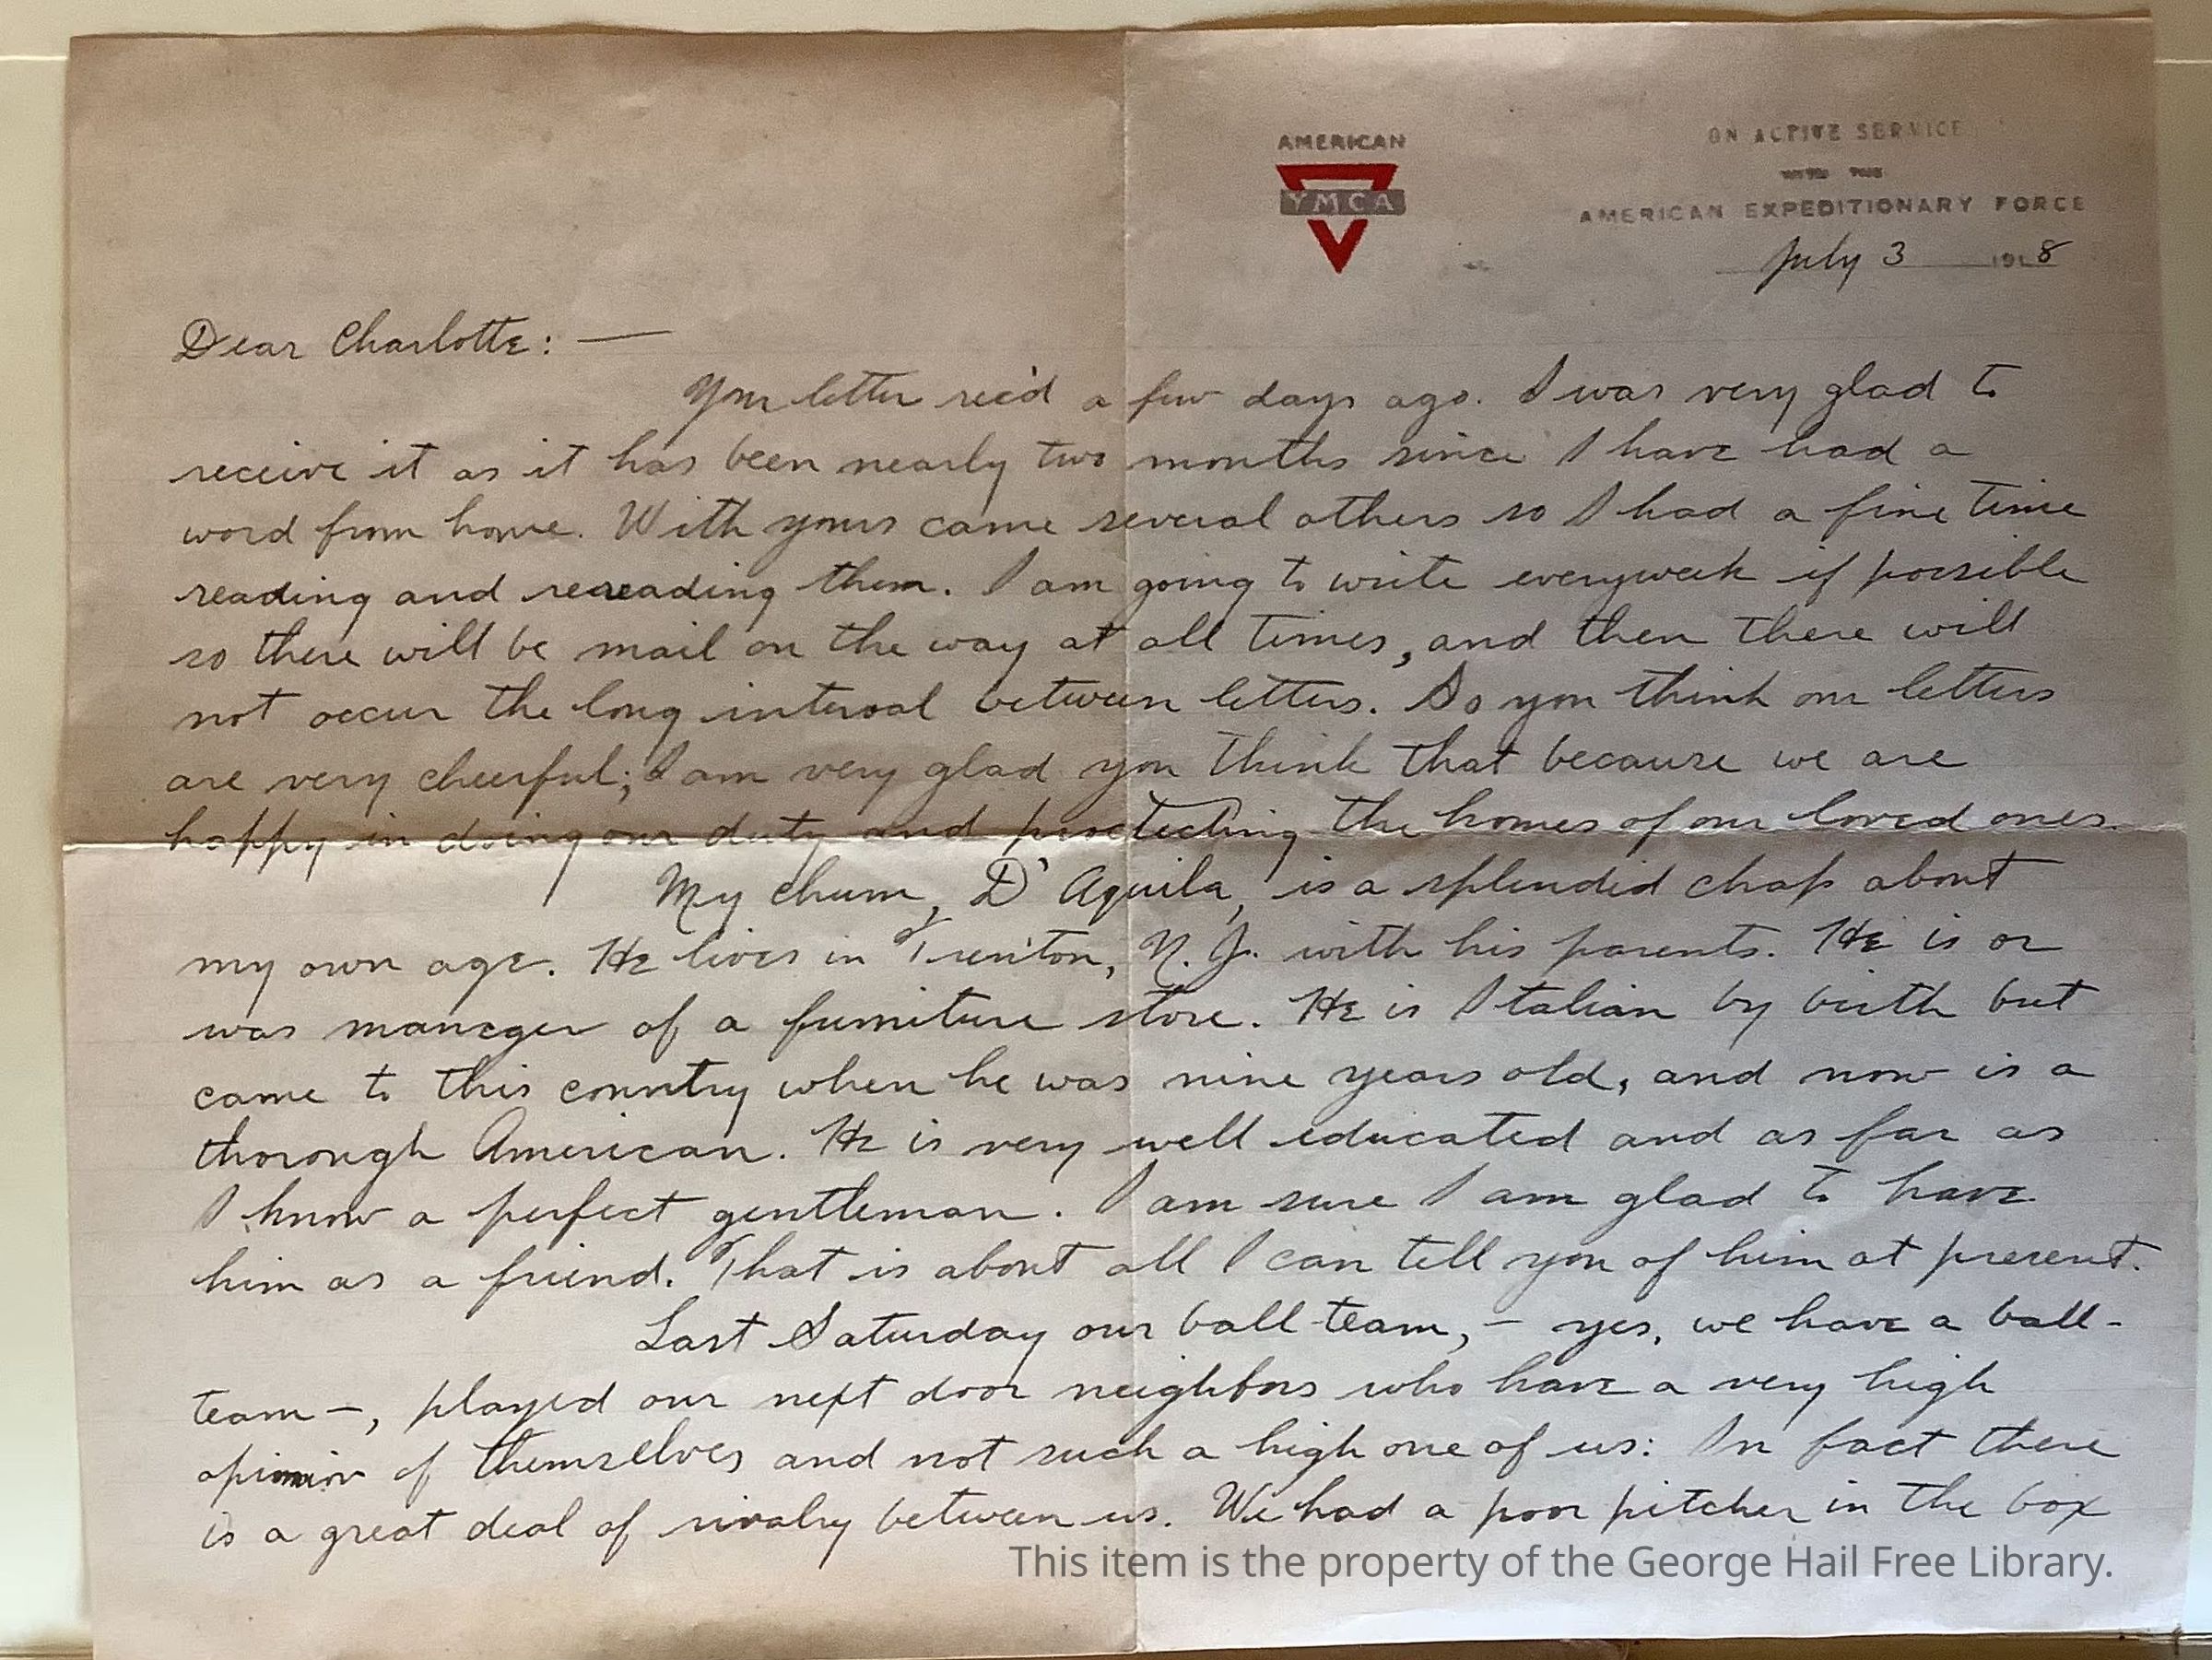 AMERICAN
YMCA
ON ACTIVE SERVICE
WITH THE
AMERICAN EXPEDITIONARY FORCE
July 3 1918
Dear Charlotte: —
Your letter rec'd a few days ago. I was very glad to
receive it as it has been nearly two months since I have had a
word from home. With yours came several others so I had a fine time
reading and rereading them. I am going to write everyweek if possible
so there will be mail on the way at all times, and then there will
not occur the long interval between letters. So you think our letters
are very cheerful; I am very glad you think that because we are
happy in doing our duty and protecting the homes of our loved ones.
My chum, D'Aquila, is a splendid chap about
my own age. He lives in Trenton, N.J. with his parents. He is or
was maneger of a furniture store. He is Italian by birth but
came to this country when he was nine years old, and now is a
thorough American. He is very well educated and as far as
I know a perfect gentleman. I am sure I am glad to have
him as a friend. That is about all I can tell you of him at present.
Last Saturday our ball-team, - yes, we have a ball-
team -, played our next door neighbors who have a very high
opinion of themsellves and not such a high one of us: In fact there
is a great deal of rivalry between us. We had a poor pitcher in the box
This item is the property of the George Hail Free Library.